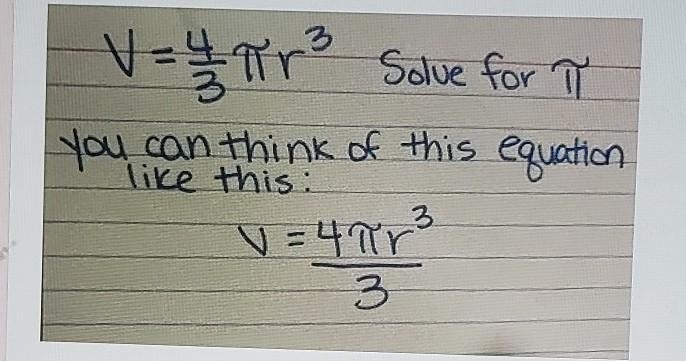 V = 4/3 πr³ Solve for π
you can think of this equation
like this:
V = 4πr³
3